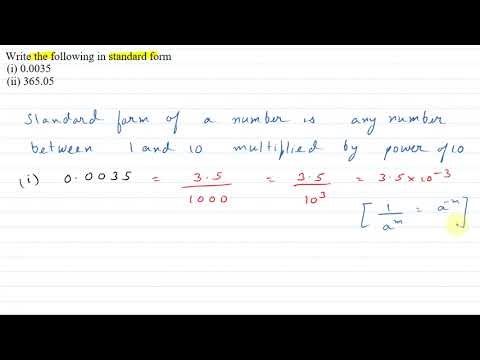 Write the following in standard form
(i) 0.0035
(ii) 365.05
Standard form of a number is any number
between 1 and 10 multiplied by power of 10
(i) 0.0035 = 3.5/1000 = 3.5/10³ = 3.5×10⁻³
[1/aᵐ = a⁻ᵐ]